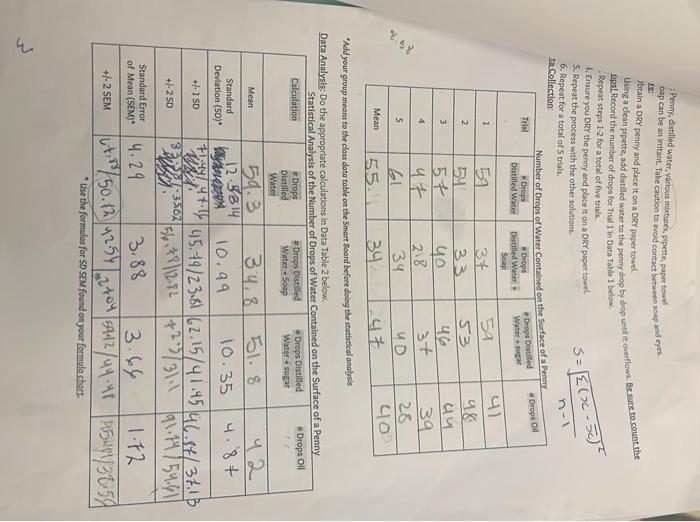 : Penny, distilled water, various mixtures, pipette, paper towel
oap can be an irritant. Take caution to avoid contact between soap and eyes.
re:
Obtain a DRY penny and place it on a DRY paper towel.
Using a clean pipette, add distilled water to the penny drop by drop until it overflows. Be sure to count the
ops! Record the number of drops for Trial 1 in Data Table 1 below.
. Repeat steps 1-2 for a total of five trials.
4. Ensure you DRY the penny and place it on a DRY paper towel.
5. Repeat the process with the other solutions.
6. Repeat for a total of 5 trials.
S = √Σ(x - x̄)²
n-1
ta Collection
Number of Drops of Water Contained on the Surface of a Penny
Trial # Drops Distilled Water # Drops Distilled Water + Soap # Drops Distilled Water + sugar # Drops Oil
1 59 37 59 41
2 51 33 53 48
3 57 40 46 44
4 47 28 37 39
5 61 34 40 28
Mean 55. 34 47 40
*Add your group means to the class data table on the Smart Board before doing the statistical analysis
Data Analysis: Do the appropriate calculations in Data Table 2 below.
Statistical Analysis of the Number of Drops of Water Contained on the Surface of a Penny
Calculation # Drops Distilled Water # Drops Distilled Water + Soap # Drops Distilled Water + sugar # Drops Oil
Mean 59.3 34.8 51.8 42
Standard Deviation (SD)* 12.5314 10.99 10.35 4.87
+/- 1 SD 45.79/23.81 62.15/41.45 46.87/37.13
+/- 2 SD
Standard Error of Mean (SEM)* 4.29 3.88 3.66 1.72
+/- 2 SEM
* Use the formulas for SD SEM found on your formula chart.